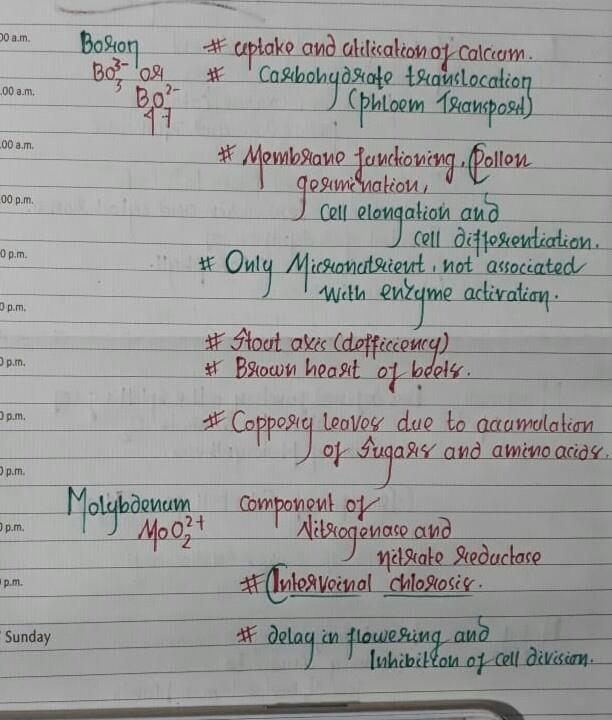 00 a.m.
Boron # uptake and utilisation of Calcium.
BO₃³⁻ or # Carbohydrate translocation
.00 a.m.
B₄O₇²⁻ (phloem Transport)
.00 a.m.
# Membrane functioning, Pollen
germination,
00 p.m.
cell elongation and
cell differentiation.
0 p.m.
# Only Micronutrient, not associated
with enzyme activation.
0 p.m.
# Stout axis (defficiency)
0 p.m.
# Brown heart of beets.
0 p.m.
# Coppery leaves due to accumulation
of Sugars and amino acids.
0 p.m.
Molybdenum component of
0 p.m.
MoO₂²⁺ Nitrogenase and
nitrate reductase
p.m.
# Interveinal chlorosis.
Sunday
# delay in flowering and
Inhibition of cell division.